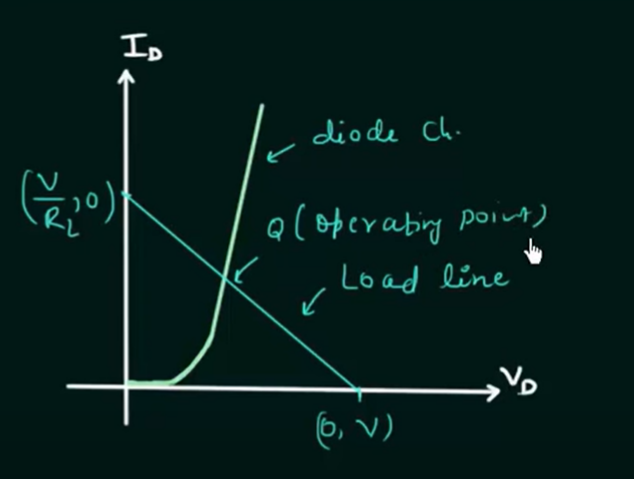 I_D
diode Ch.
(V/R_L, 0)
Q (operating point)
Load line
V_D
(0, V)